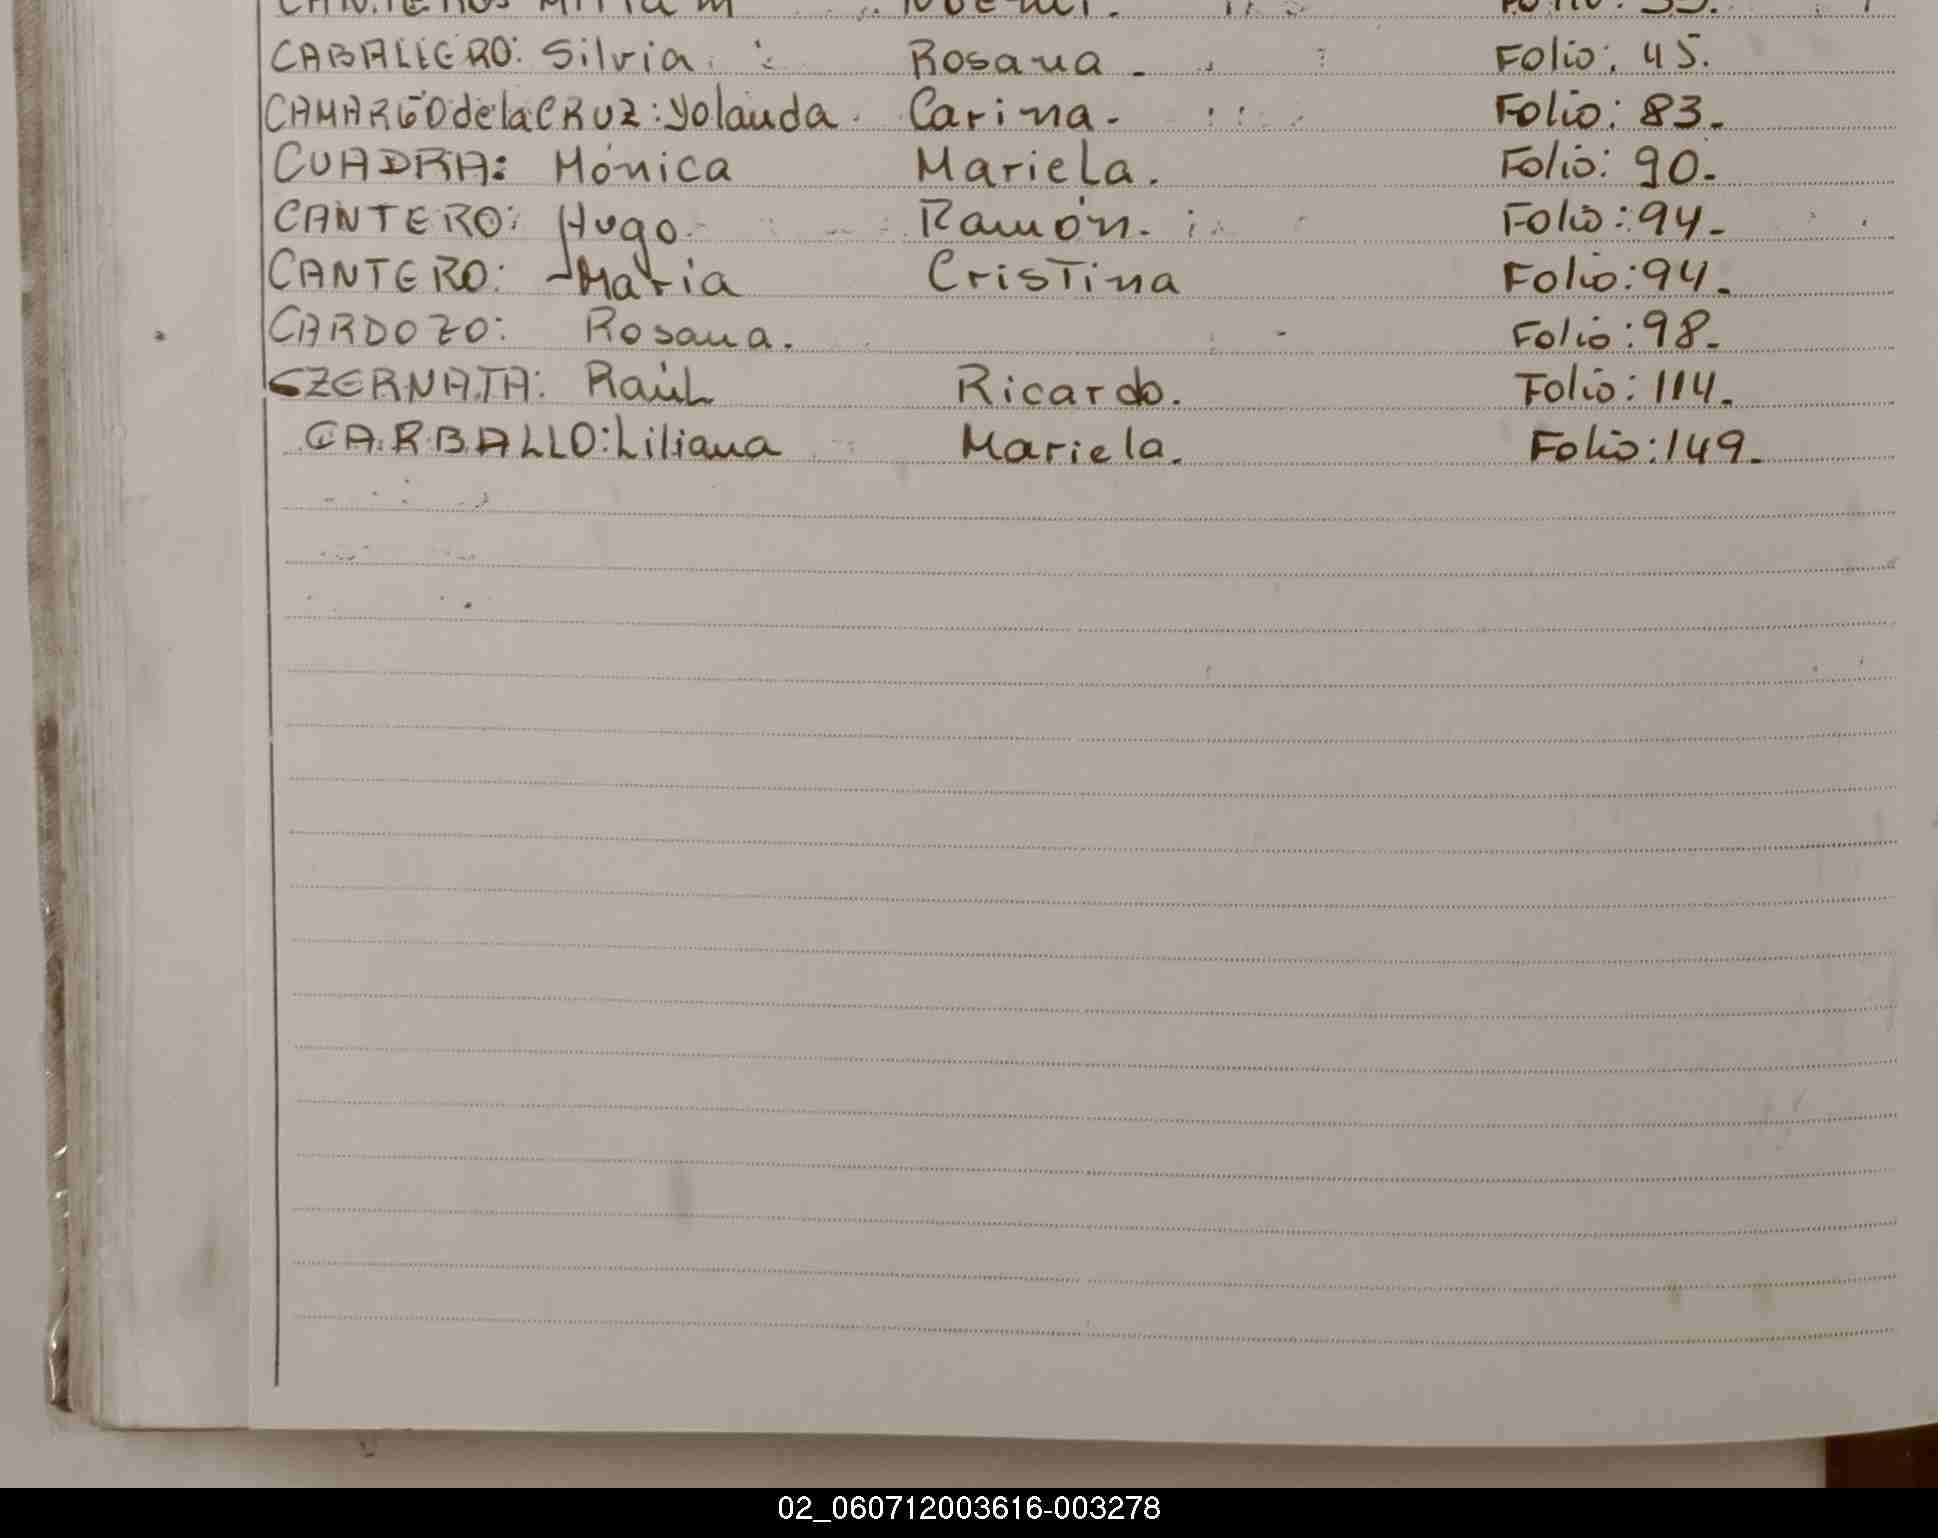 CABALLERO: Silvia Rosana. Folio: 45.
CAMARGO de la CRUZ: Yolanda Carina. Folio: 83.
CUADRA: Mónica Mariela. Folio: 90.
CANTERO: Hugo Ramón. Folio: 94.
CANTERO: María Cristina Folio: 94.
CARDOZO: Rosana. Folio: 98.
CZERNATA: Raúl Ricardo. Folio: 114.
CARBALLO: Liliana Mariela. Folio: 149.
02_060712003616-003278